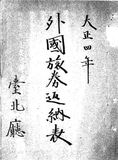 大正四年
外國旅券返納表
臺北廳